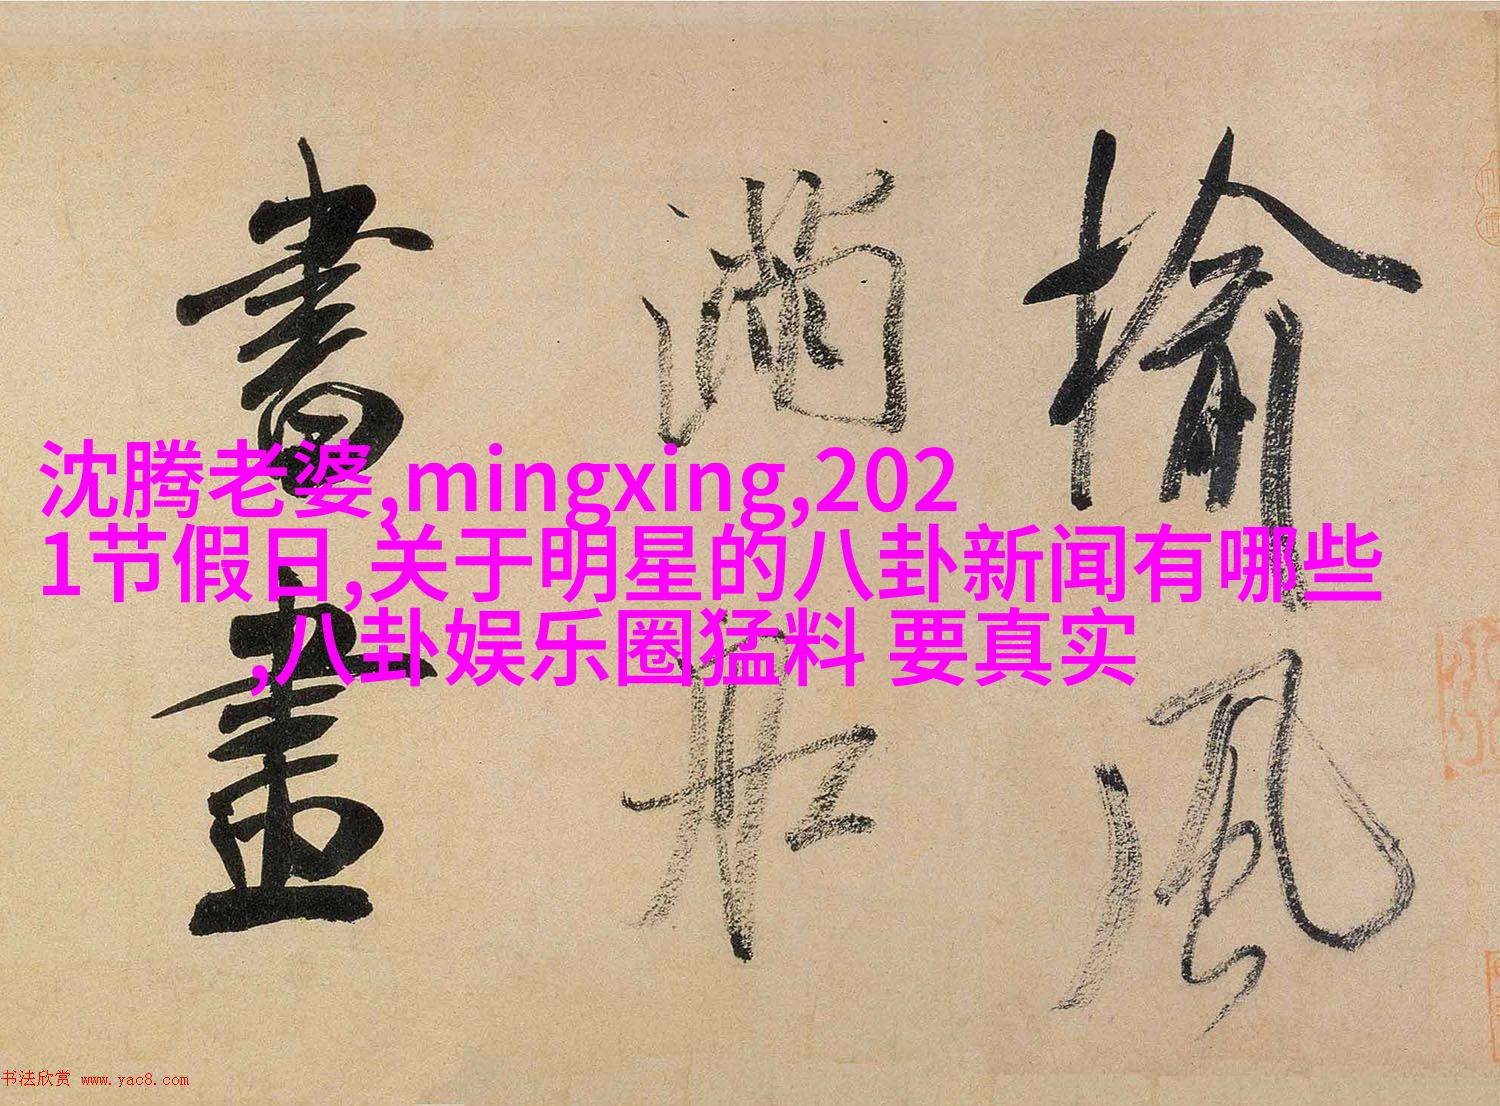 沈腾老婆,mingxing,202
1节假日,关于明星的八卦新闻有哪些
,八卦娱乐圈猛料 要真实
榆風
滿船
書畫
书法欣赏 www.yac8.com